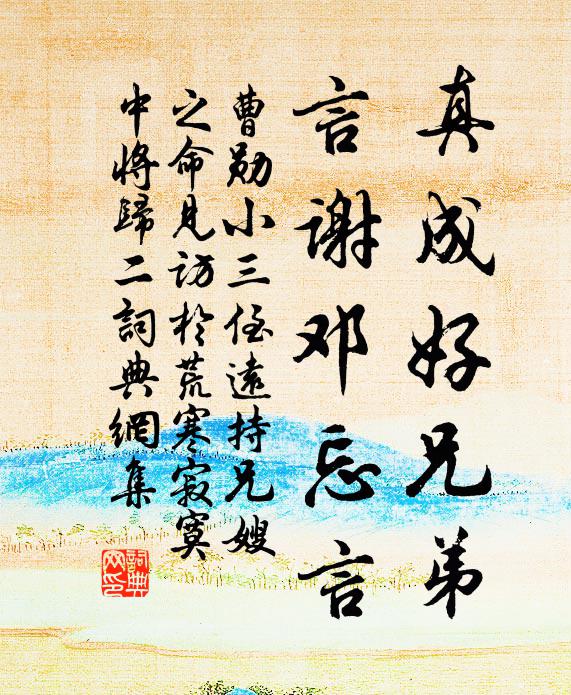 真成好兄弟
言谢邓忘言
曹勋小三侄遠持兄嫂
之命見訪於荒寒寂寞
中将歸二詞典網集
詞典
网印